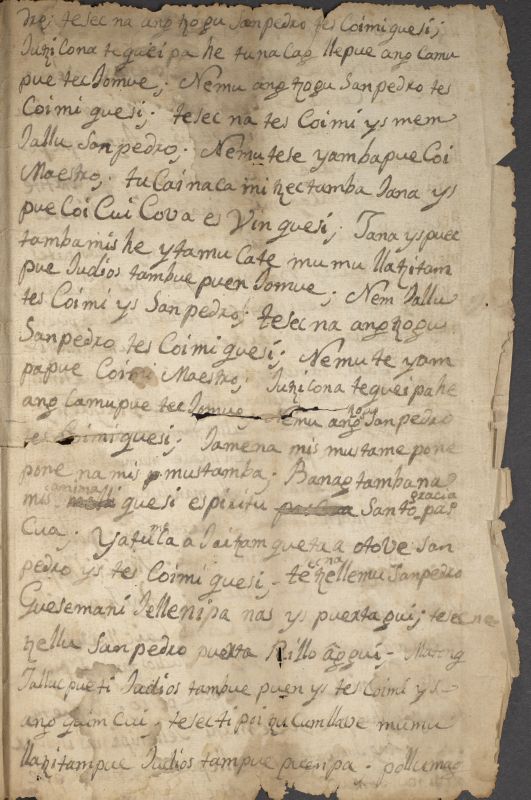 dro; tesec na ang hogu San pedro tes Coimi guesi;
Juhi Cona teguei pa he tu na Cag llepue ang Camu
pue tec Jomue; Nemu ang hogu San pedro tes
Coimi guesi; tesec na tes Coimi ys mem
Jallu San pedro; Nemu tese yambapue Coi
Maestro; tu Cai na Ca mi hec tamba Jana ys
pue Coi Cui Cova es Vin guesi; Jana ys puec
tamba mis he y tamu Cate mu mu llahitam
pue Judios tambue puen Jomue; Nem Jallu
tes Coimi ys San pedro; tesec na ang hogu
San pedro tes Coimi guesi; Nemu te yam
papue Coimi Maestro; Juhi Cona teguei pa he
ang Camu pue tec Jomue; Nemu ang hogu San pedro
tes Coimi guesi; Jamena mis mustame pone
pone na mis mustamba; Banag tambana
mis anima guesi espiritu Santo gracia pas
Cua; yatu me la a Jaitam guet a a otove San
pedro ys tes Coimi guesi - tes na hellemu San pedro
Guesemani Jelleni pa nas ys puerta gui; tesec ne
hellu San pedro puerta Rillo ang gui; Mateng
Jalluc pueti Judios tambue puen ys tes Coimi ys
ang guim Cui - tesecti poi gu Cumllave mumu
llahitampue Judios tampue puen pa - pollumag